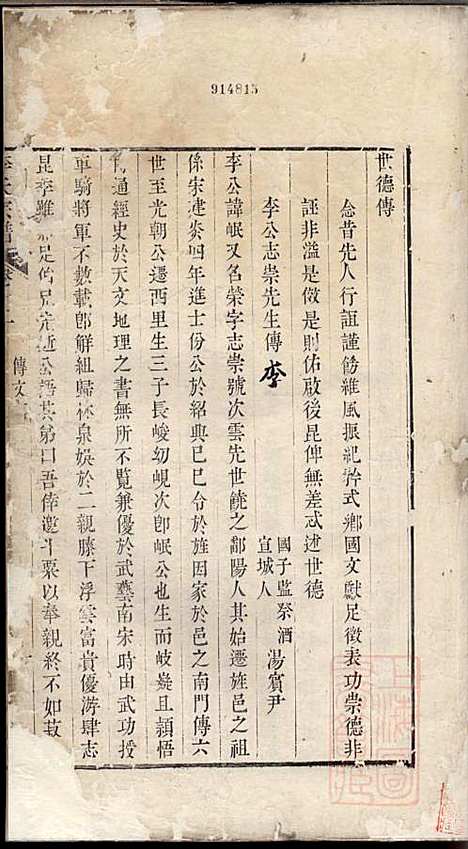 914815
世德傳
念昔先人行誼謹飭維風振紀矜式鄉國文獻足徵表功崇德非
誣非溢是倣是則佑啟後昆俾無差忒述世德
李公志崇先生傳 李
國子監祭酒 湯賓尹
宣城人
李公諱岷又名榮字志崇號次雲先世饒之鄱陽人其始遷旌邑之祖
係宋建炎四年進士份公於紹興己巳令於旌因家於邑之南門傳六
世至光朝公遷西里生三子長峻幼峴次即岷公也生而岐嶷且穎悟
通經史於天文地理之書無所不覧兼優於武藝南宋時由武功授
車騎將軍不數載即解組歸林泉娛於二親膝下浮雲富貴優游肆志
昆季雖 足 公語其弟曰吾倖邀斗粟以奉親終不如菽
傳文
上海圖書館藏